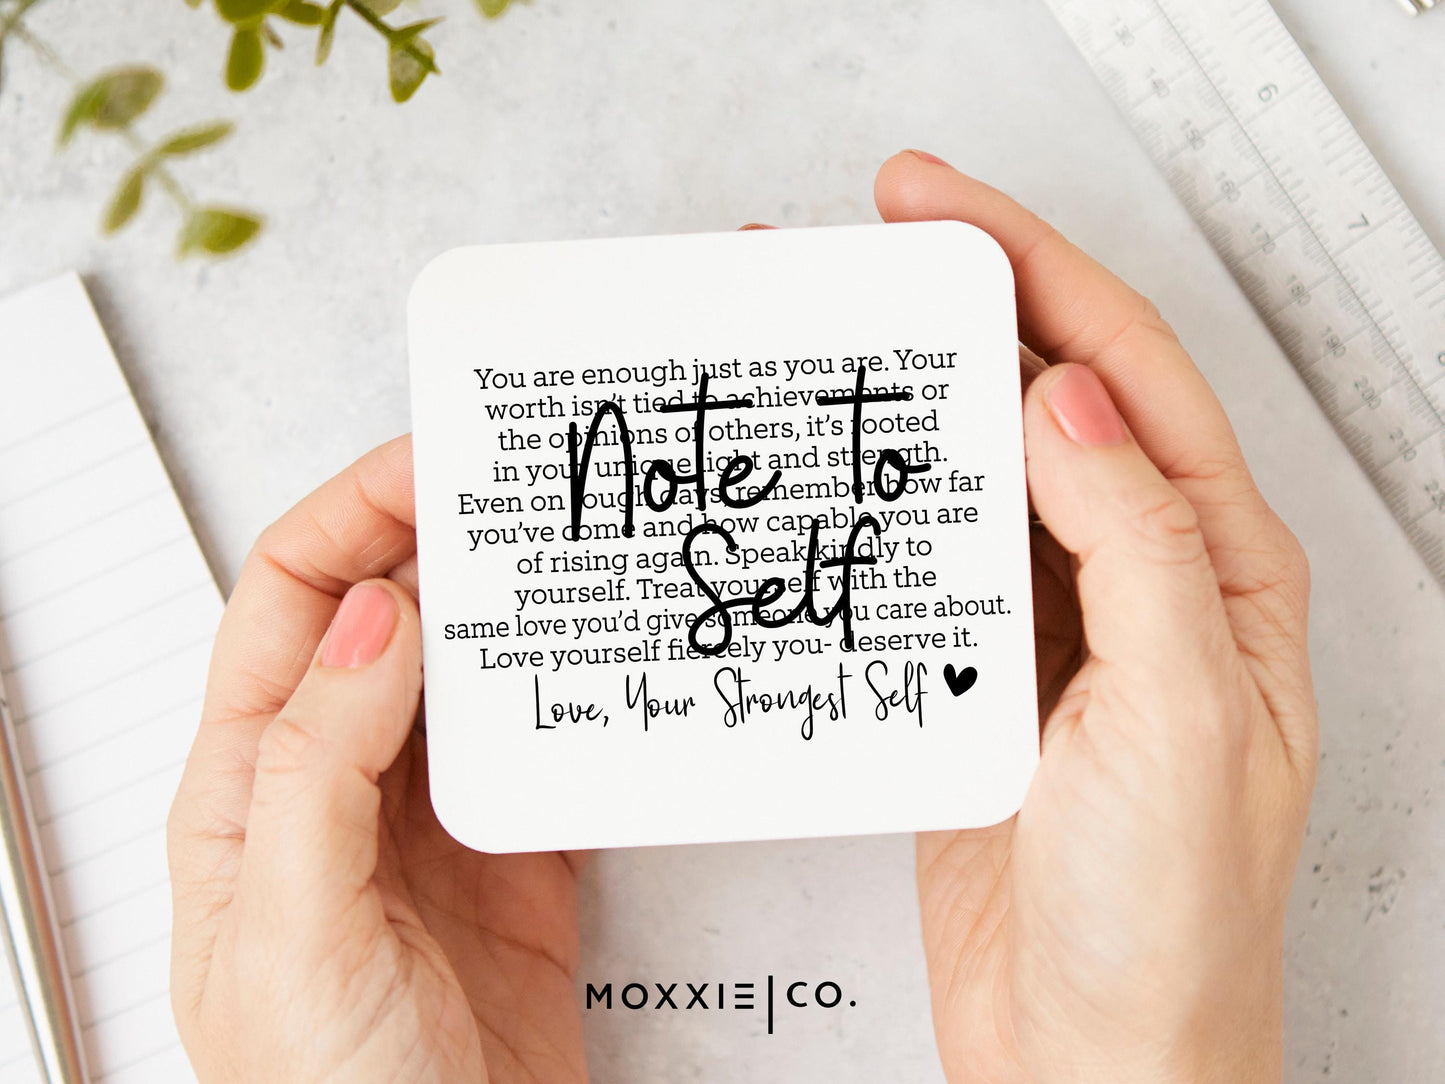 You are enough just as you are. Your
worth isn't tied to achievements or
the opinions of others, it's rooted
in your unique light and strength.
Even on tough days, remember how far
you've come and how capable you are
of rising again. Speak kindly to
yourself. Treat yourself with the
same love you'd give someone you care about.
Love yourself fiercely you- deserve it.
Note to
Self
Love, Your Strongest Self
MOXXIE|CO.
6
7
130
140
150
160
170
180
190
200
210